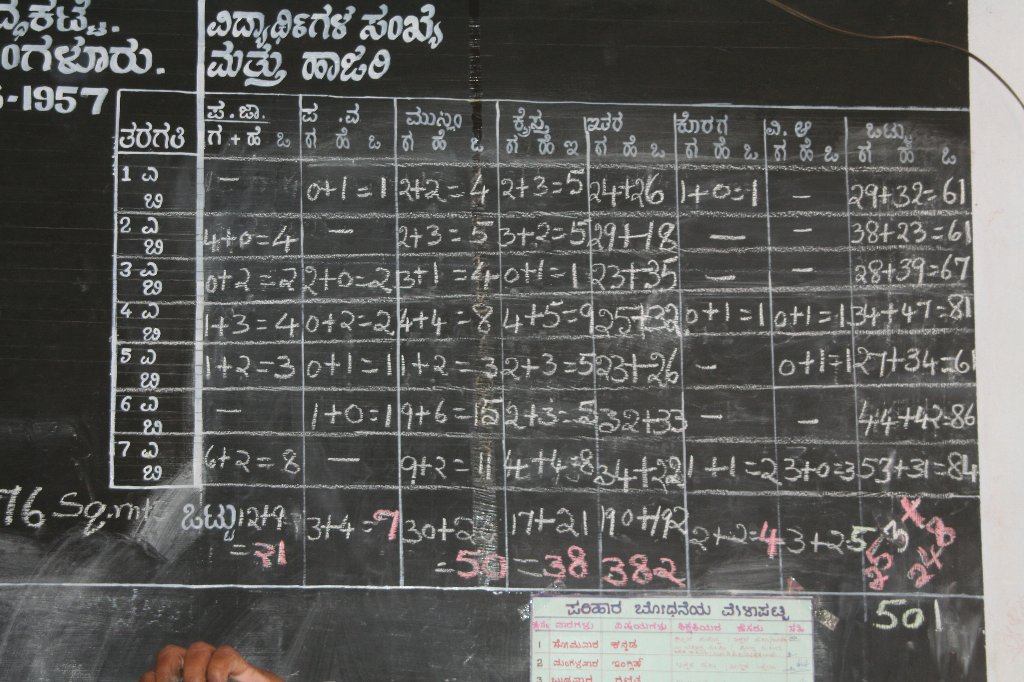 ದ್ಧಕಟ್ಟೆ.
ಂಗಳೂರು.
-1957
ವಿದ್ಯಾರ್ಥಿಗಳ ಸಂಖ್ಯೆ
ಮತ್ತು ಹಾಜರಿ
ತರಗತಿ ಪ.ಜಾ. ಪ.ವ ಮುಸ್ಲಿಂ ಕ್ರೈಸ್ತ ಇತರ ಕೊರಗ ವಿ.ಳ ಒಟ್ಟು
ಗ + ಹ ಒ ಗ ಹೆ ಒ ಗ ಹೆ ಒ ಗ ಹೆ ಇ ಗ ಹೆ ಒ ಗ ಹೆ ಒ ಗ ಹೆ ಒ ಗ ಹೆ ಒ
1 ಎ ಬಿ – 0+1=1 2+2=4 2+3=5 24+26 1+0=1 – 29+32=61
2 ಎ ಬಿ 4+0=4 – 2+3=5 3+2=5 29+18 – – 38+23=61
3 ಎ ಬಿ 0+2=2 2+0=2 3+1=4 0+1=1 23+35 – – 28+39=67
4 ಎ ಬಿ 1+3=4 0+2=2 4+4=8 4+5=9 25+32 0+1=1 0+1=1 34+47=81
5 ಎ ಬಿ 1+2=3 0+1=1 1+2=3 2+3=5 23+26 – 0+1=1 27+34=61
6 ಎ ಬಿ – 1+0=1 9+6=15 2+3=5 32+33 – – 44+42=86
7 ಎ ಬಿ 6+2=8 – 9+2=11 4+4=8 34+22 1+1=2 3+0=3 53+31=84
76 Sq.mt
ಒಟ್ಟು 12+9 3+4=7 30+2 17+21 190+192 2+2=4 3+2 5
=21 =50 =38 382
253 x 248
501
ಪರಿಹಾರ ಬೋಧನೆಯ ವೇಳಾಪಟ್ಟಿ
ಕ್ರ.ಸಂ ವಾರಗಳು ವಿಷಯಗಳು ಶಿಕ್ಷಕಿಯರ ಹೆಸರು ಸಹಿ
1 ಸೋಮವಾರ ಕನ್ನಡ
2 ಮಂಗಳವಾರ ಇಂಗ್ಲಿಷ್
3 ಬುಧವಾರ ಗಣಿತ